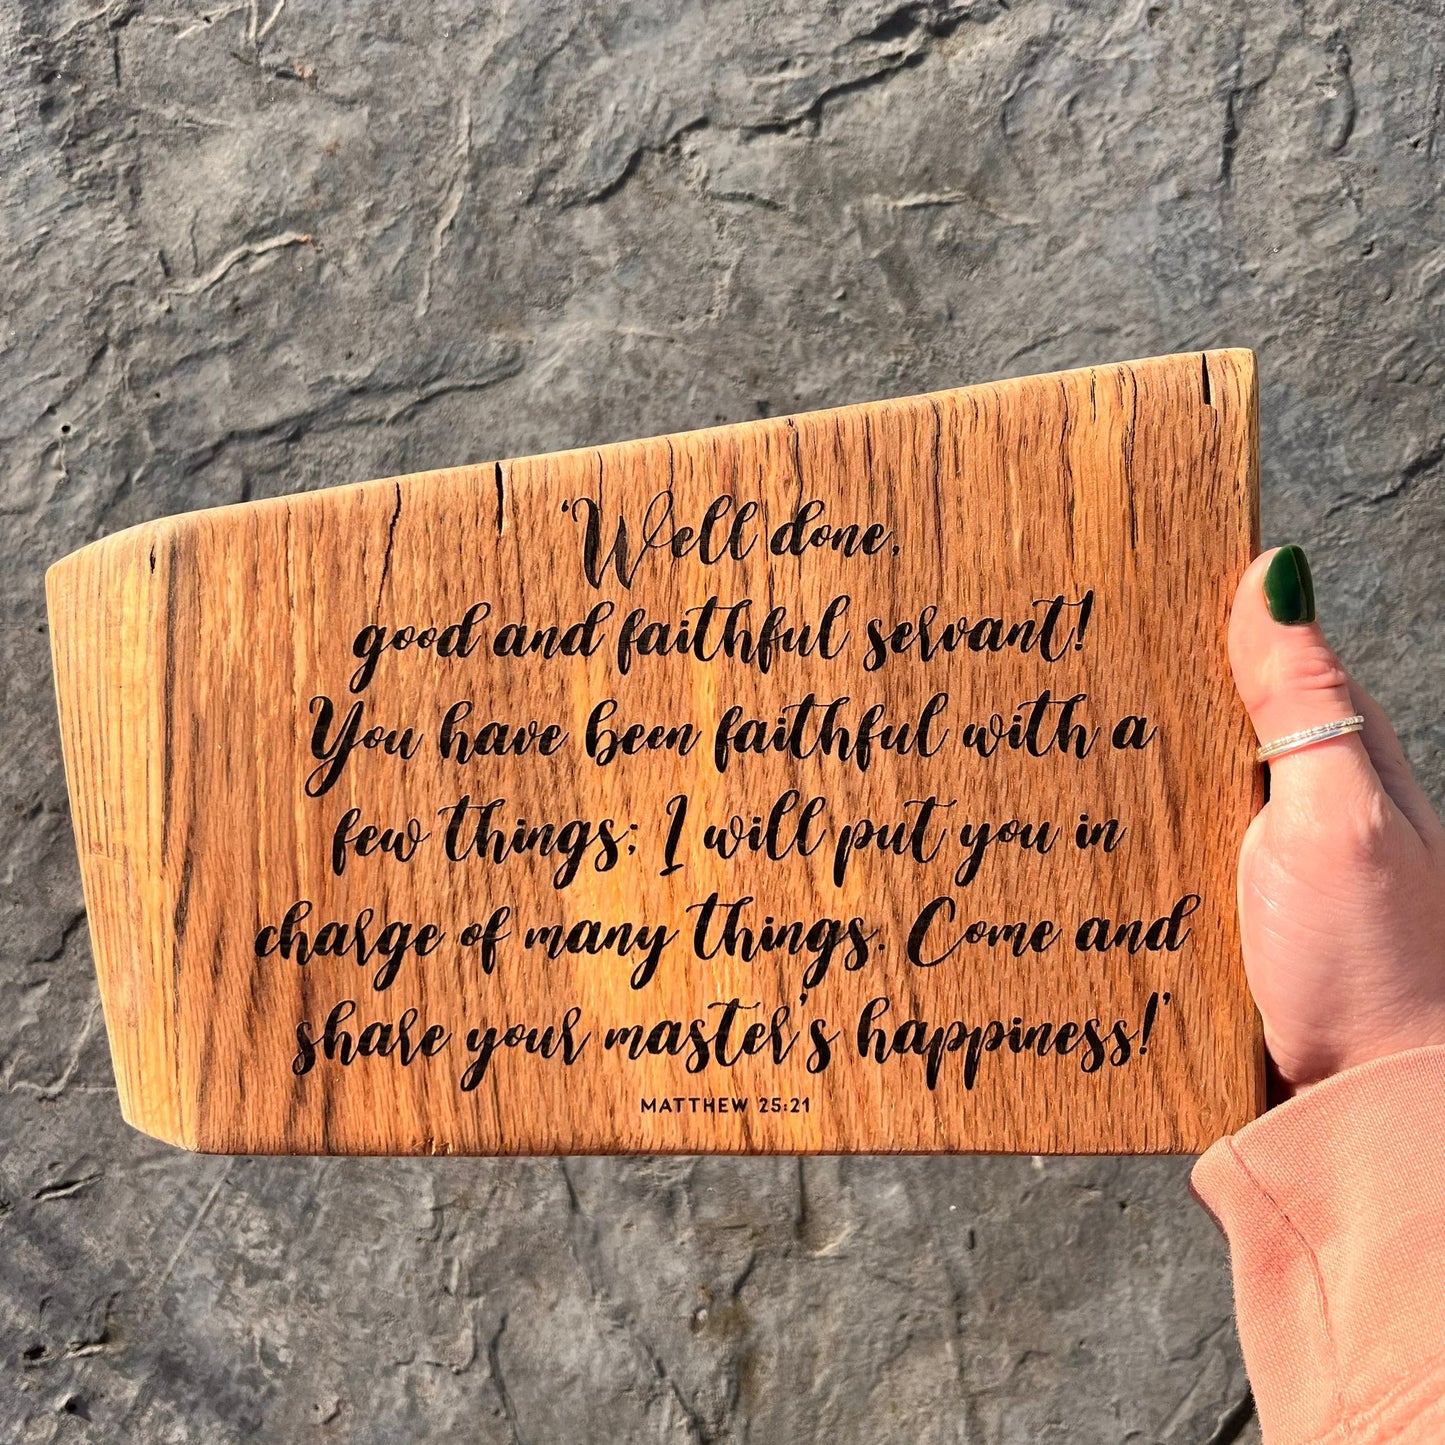 ‘Well done,
good and faithful servant!
You have been faithful with a
few things; I will put you in
charge of many things. Come and
share your master's happiness!’
MATTHEW 25:21